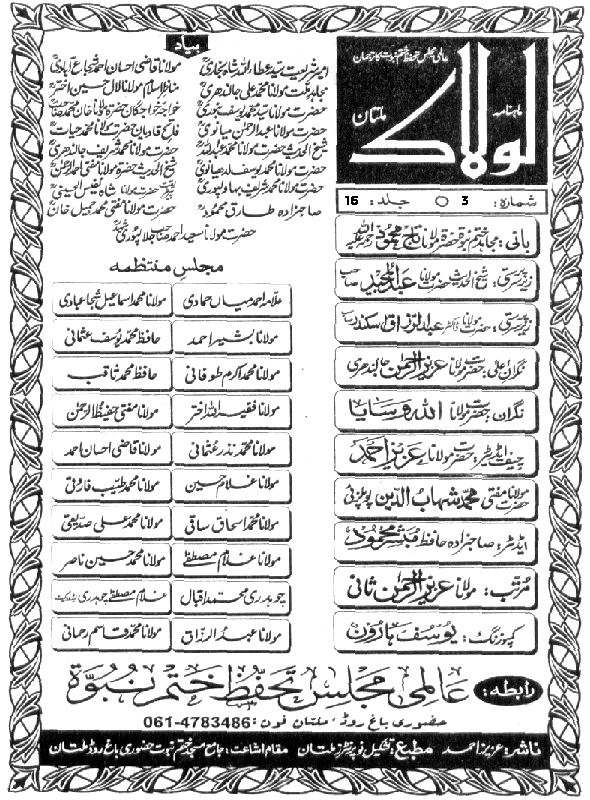 عالمی مجلس تحفظ ختم نبوت کا ترجمان
ماہنامہ
لولاک
ملتان
شمارہ: 3 جلد: 16
بانی: مجاہد ختم نبوۃ حضرۃ مولانا تاج محمود رحمۃ اللہ علیہ
زیر سرپرستی: شیخ الحدیث حضرت مولانا عبدالمجید صاحب
زیر سرپرستی: حضرت مولانا ڈاکٹر عبدالرزاق سکندر
نگران اعلیٰ: حضرت مولانا عزیز الرحمٰن جالندھری
نگران: حضرت مولانا اللہ وسایا
چیف ایڈیٹر: حضرت مولانا عزیز احمد
حضرت مولانا مفتی محمد شہاب الدین پوپلزئی
ایڈیٹر: صاحبزادہ حافظ مبشر محمود
مرتب: مولانا عزیز الرحمٰن ثانی
کمپوزنگ: یوسف ہارون
بیاد
امیر شریعت سید عطاء اللہ شاہ بخاری مولانا قاضی احسان احمد شجاع آبادی
مجاہد ملت مولانا محمد علی جالندھری مناظر اسلام مولانا لال حسین اختر
حضرت مولانا سید محمد یوسف بنوری خواجہ خواجگان حضرۃ مولانا خان محمد
حضرت مولانا عبدالرحمٰن میانوی فاتح قادیان حضرت مولانا محمد حیات
شیخ الحدیث حضرت مولانا محمد عبداللہ حضرت مولانا محمد شریف جالندھری
حضرت مولانا محمد یوسف لدھیانوی شیخ الحدیث حضرۃ مولانا مفتی احمد الرحمٰن
حضرت مولانا محمد شریف بہاولپوری حضرت مولانا شاہ نفیس الحسینی
صاحبزادہ طارق محمود حضرت مولانا مفتی محمد جمیل خان
حضرت مولانا سعید احمد جلالپوری
مجلس منتظمہ
علامہ احمد میاں حمادی مولانا محمد اسماعیل شجاعبادی
مولانا بشیر احمد حافظ محمد یوسف عثمانی
مولانا محمد اکرم طوفانی حافظ محمد ثاقب
مولانا فقیر اللہ اختر مولانا مفتی حفیظ الرحمٰن
مولانا محمد نذر عثمانی مولانا قاضی احسان احمد
مولانا غلام حسین مولانا محمد طیب فاروقی
مولانا محمد اسحاق ساقی مولانا محمد علی صدیقی
مولانا غلام مصطفیٰ مولانا محمد حسین ناصر
چوہدری محمد اقبال غلام مصطفیٰ چوہدری
مولانا عبدالرزاق مولانا محمد قاسم رحمانی
رابطہ: عالمی مجلس تحفظ ختم نبوۃ
حضوری باغ روڈ، ملتان فون: 061-4783486
ناشر: عزیز احمد مطبع: تشکیل نو پرنٹرز ملتان مقام اشاعت: جامع مسجد ختم نبوت حضوری باغ روڈ ملتان